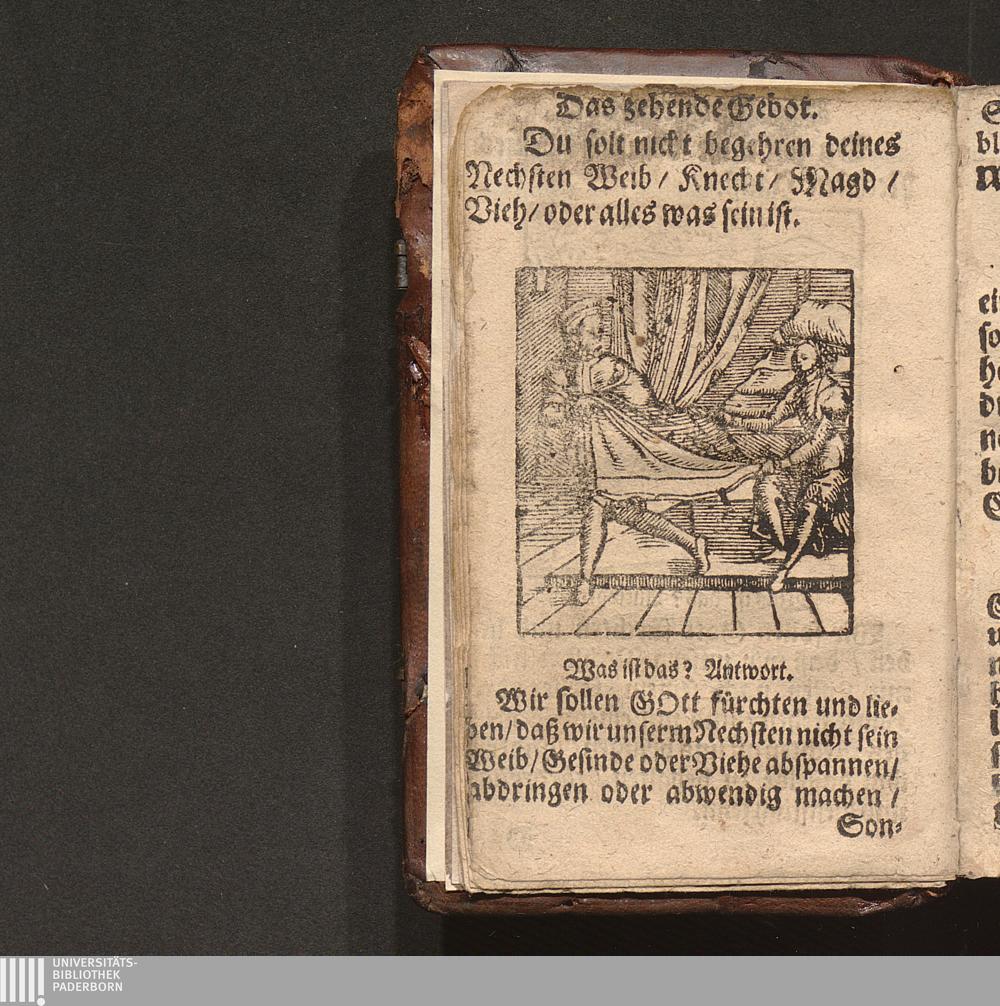 Das zehende Gebot.
Du solt nicht begehren deines
Nechsten Weib / Knecht / Magd /
Vieh / oder alles was sein ist.
Was ist das? Antwort.
Wir sollen GOtt fürchten und lie-
ben / daß wir unserm Nechsten nicht sein
Weib / Gesinde oder Viehe abspannen /
abdringen oder abwendig machen /
Son-
UNIVERSITÄTS-
BIBLIOTHEK
PADERBORN